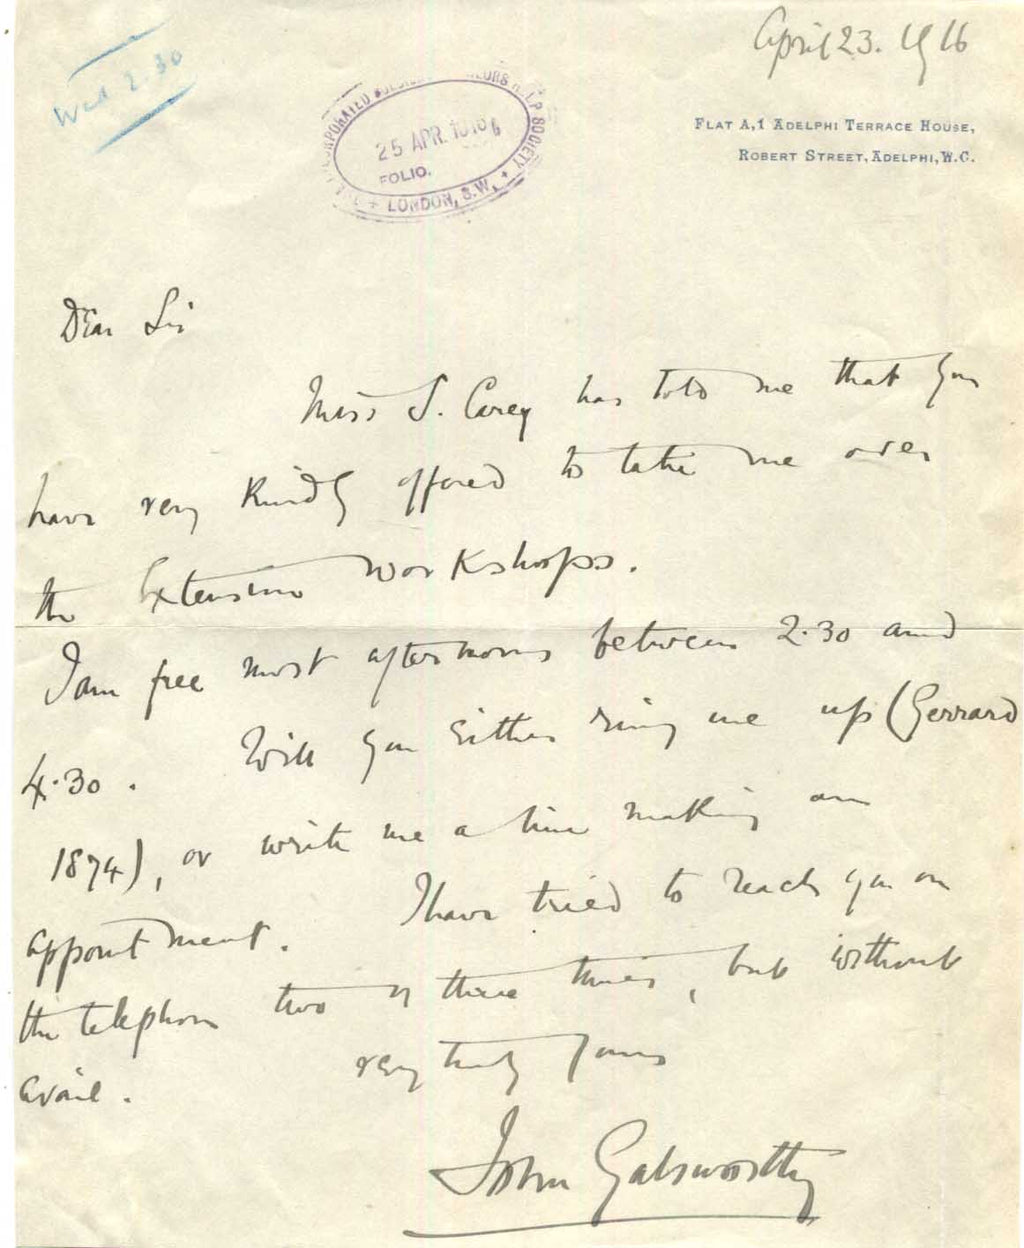 April 23. 1916
Wed 2.30
INCORPORATED SOLDIERS HELP SOCIETY
25 APR. 1916
FOLIO.
+ LONDON, S.W. +
FLAT A,1 ADELPHI TERRACE HOUSE,
ROBERT STREET, ADELPHI, W.C.
Dear Sir
Miss S. Carey has told me that you
have very kindly offered to take me over
the Extension Workshops.
I am free most afternoons between 2.30 and
4.30. Will you either ring me up (Gerrard
1874), or write me a line making an
appointment. I have tried to reach you on
the telephone two or three times, but without
avail. very truly yours
John Galsworthy